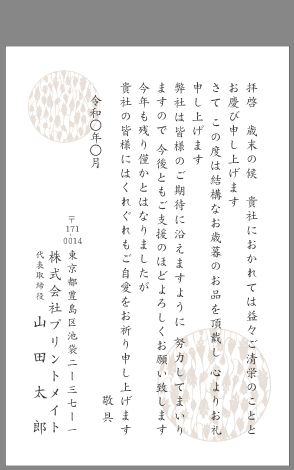 拝啓　歳末の候　貴社におかれては益々ご清栄のことと
お慶び申し上げます
さて この度は結構なお歳暮のお品を頂戴し 心よりお礼
申し上げます
弊社は皆様のご期待に沿えますように 努力してまいり
ますので 今後ともご支援のほどよろしくお願い致します
今年も残り僅かとはなりましたが
貴社の皆様にはくれぐれもご自愛をお祈り申し上げます
敬具
令和〇年〇月
〒171 0014
東京都豊島区池袋二ー三七ー一
株式会社プリントメイト
代表取締役　山田太郎